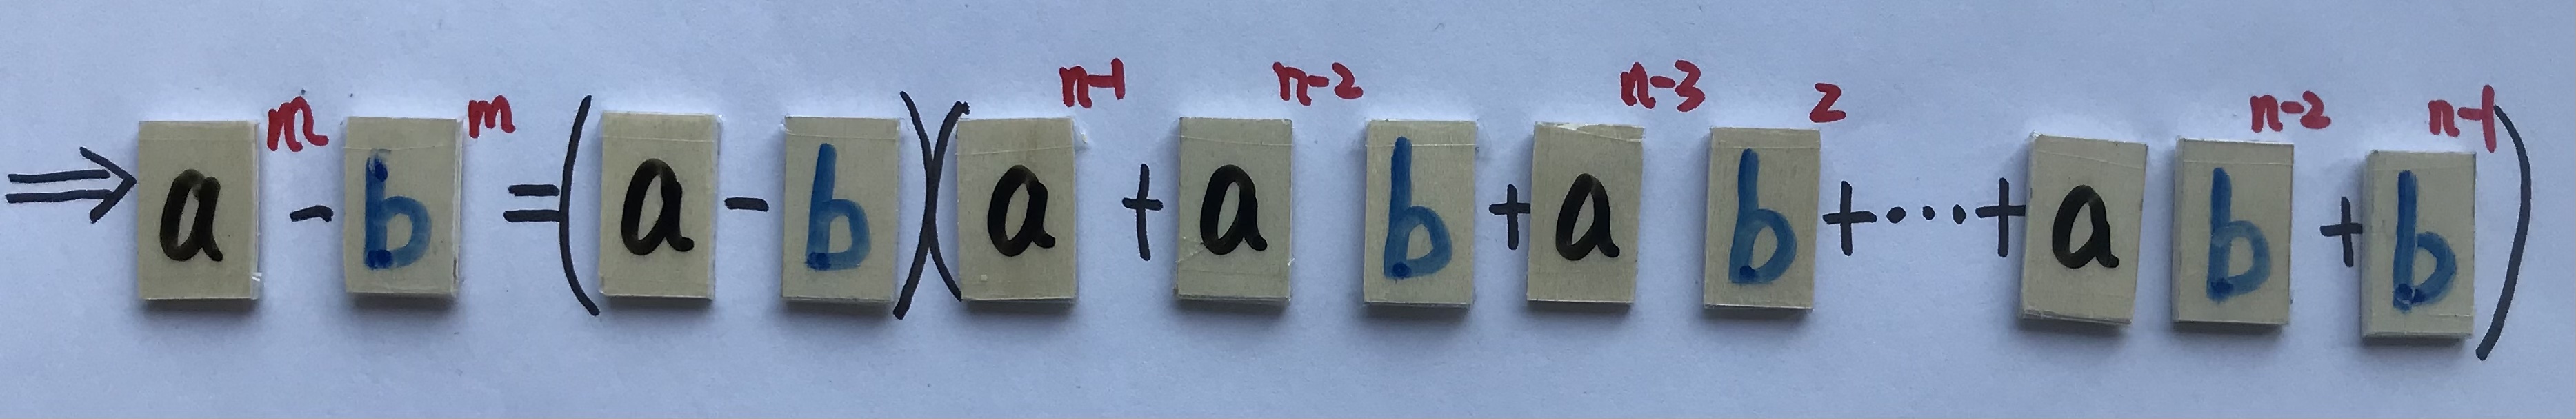 ⇒ a^m - b^m = (a - b)(a^{n-1} + a^{n-2} b + a^{n-3} b^2 + ··· + a b^{n-2} + b^{n-1})